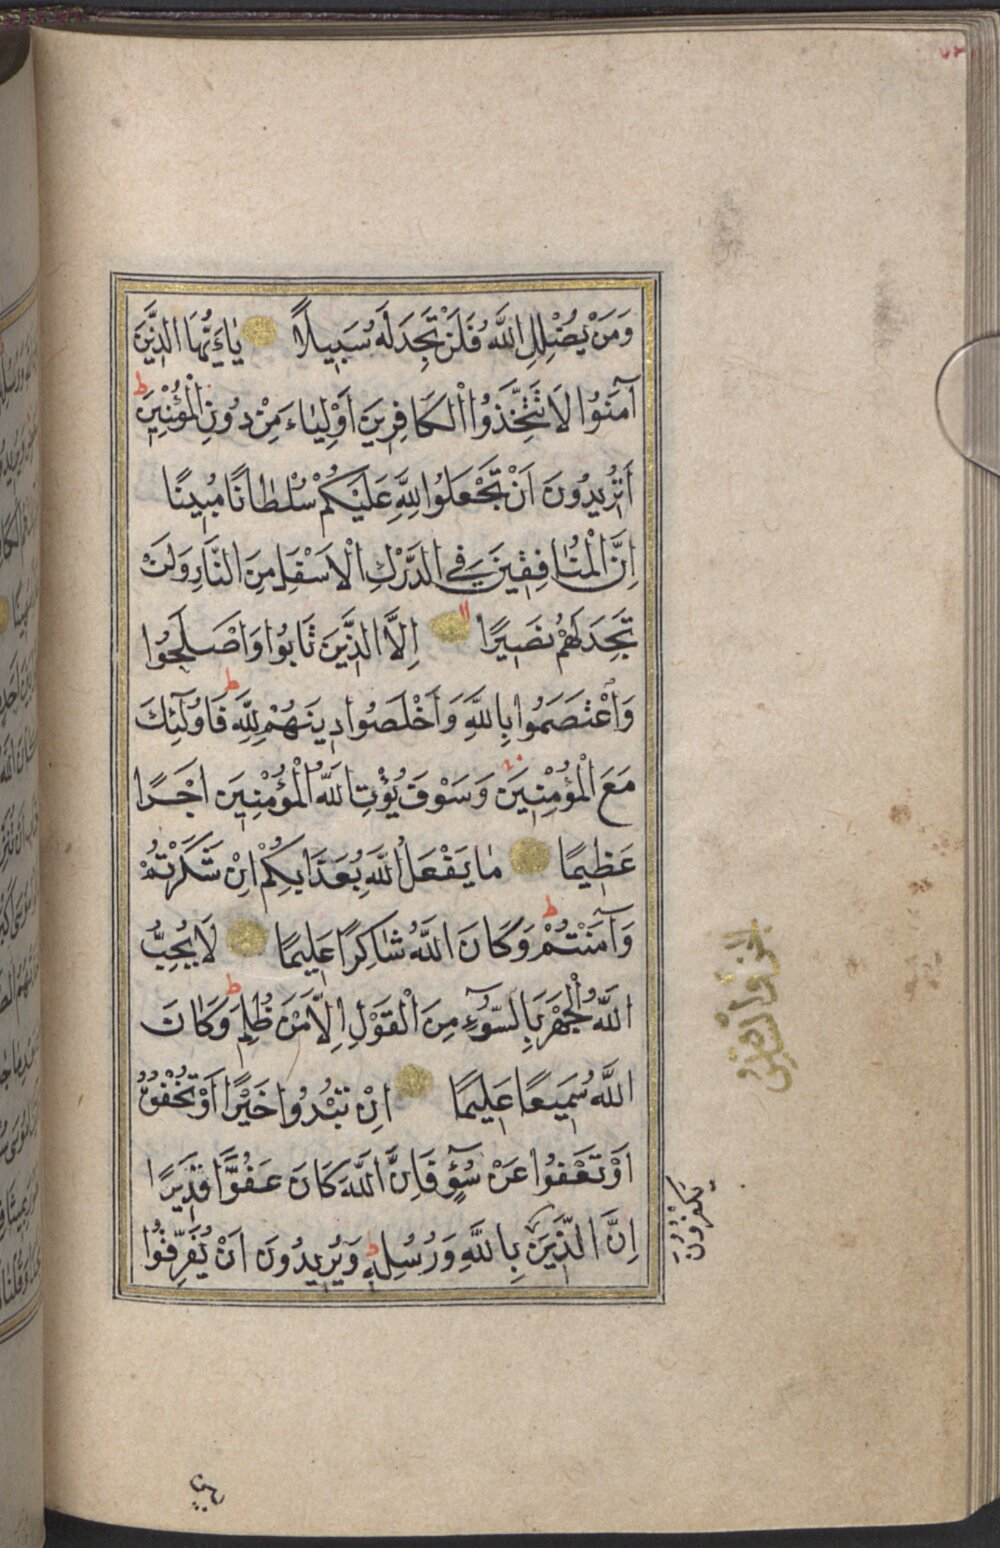 وَمَنْ يُضْلِلِ اللَّهُ فَلَنْ تَجِدَ لَهُ سَبِيلًا يَٰاَيُّهَا الَّذِينَ
آمَنُوا لَا تَتَّخِذُوا الْكَافِرِينَ اَوْلِيَاءَ مِنْ دُونِ الْمُؤْمِنِينَ ط
اَتُرِيدُونَ اَنْ تَجْعَلُوا لِلَّهِ عَلَيْكُمْ سُلْطَانًا مُبِينًا
اِنَّ الْمُنَافِقِينَ فِي الدَّرْكِ الْاَسْفَلِ مِنَ النَّارِ وَلَنْ
تَجِدَ لَهُمْ نَصِيرًا اِلَّا الَّذِينَ تَابُوا وَاَصْلَحُوا
وَاعْتَصَمُوا بِاللَّهِ وَاَخْلَصُوا دِينَهُمْ لِلَّهِ ط فَاُولَٰئِكَ
مَعَ الْمُؤْمِنِينَ وَسَوْفَ يُؤْتِ اللَّهُ الْمُؤْمِنِينَ اَجْرًا
عَظِيمًا مَا يَفْعَلُ اللَّهُ بِعَذَابِكُمْ اِنْ شَكَرْتُمْ
وَآمَنْتُمْ ط وَكَانَ اللَّهُ شَاكِرًا عَلِيمًا لَا يُحِبُّ
اللَّهُ الْجَهْرَ بِالسُّوءِ مِنَ الْقَوْلِ اِلَّا مَنْ ظُلِمَ ط وَكَانَ
اللَّهُ سَمِيعًا عَلِيمًا اِنْ تُبْدُوا خَيْرًا اَوْ تُخْفُوهُ
اَوْ تَعْفُوا عَنْ سُوءٍ فَاِنَّ اللَّهَ كَانَ عَفُوًّا قَدِيرًا
اِنَّ الَّذِينَ بِاللَّهِ وَرُسُلِهِ وَيُرِيدُونَ اَنْ يُفَرِّقُوا
يَكْفُرُونَ
بين